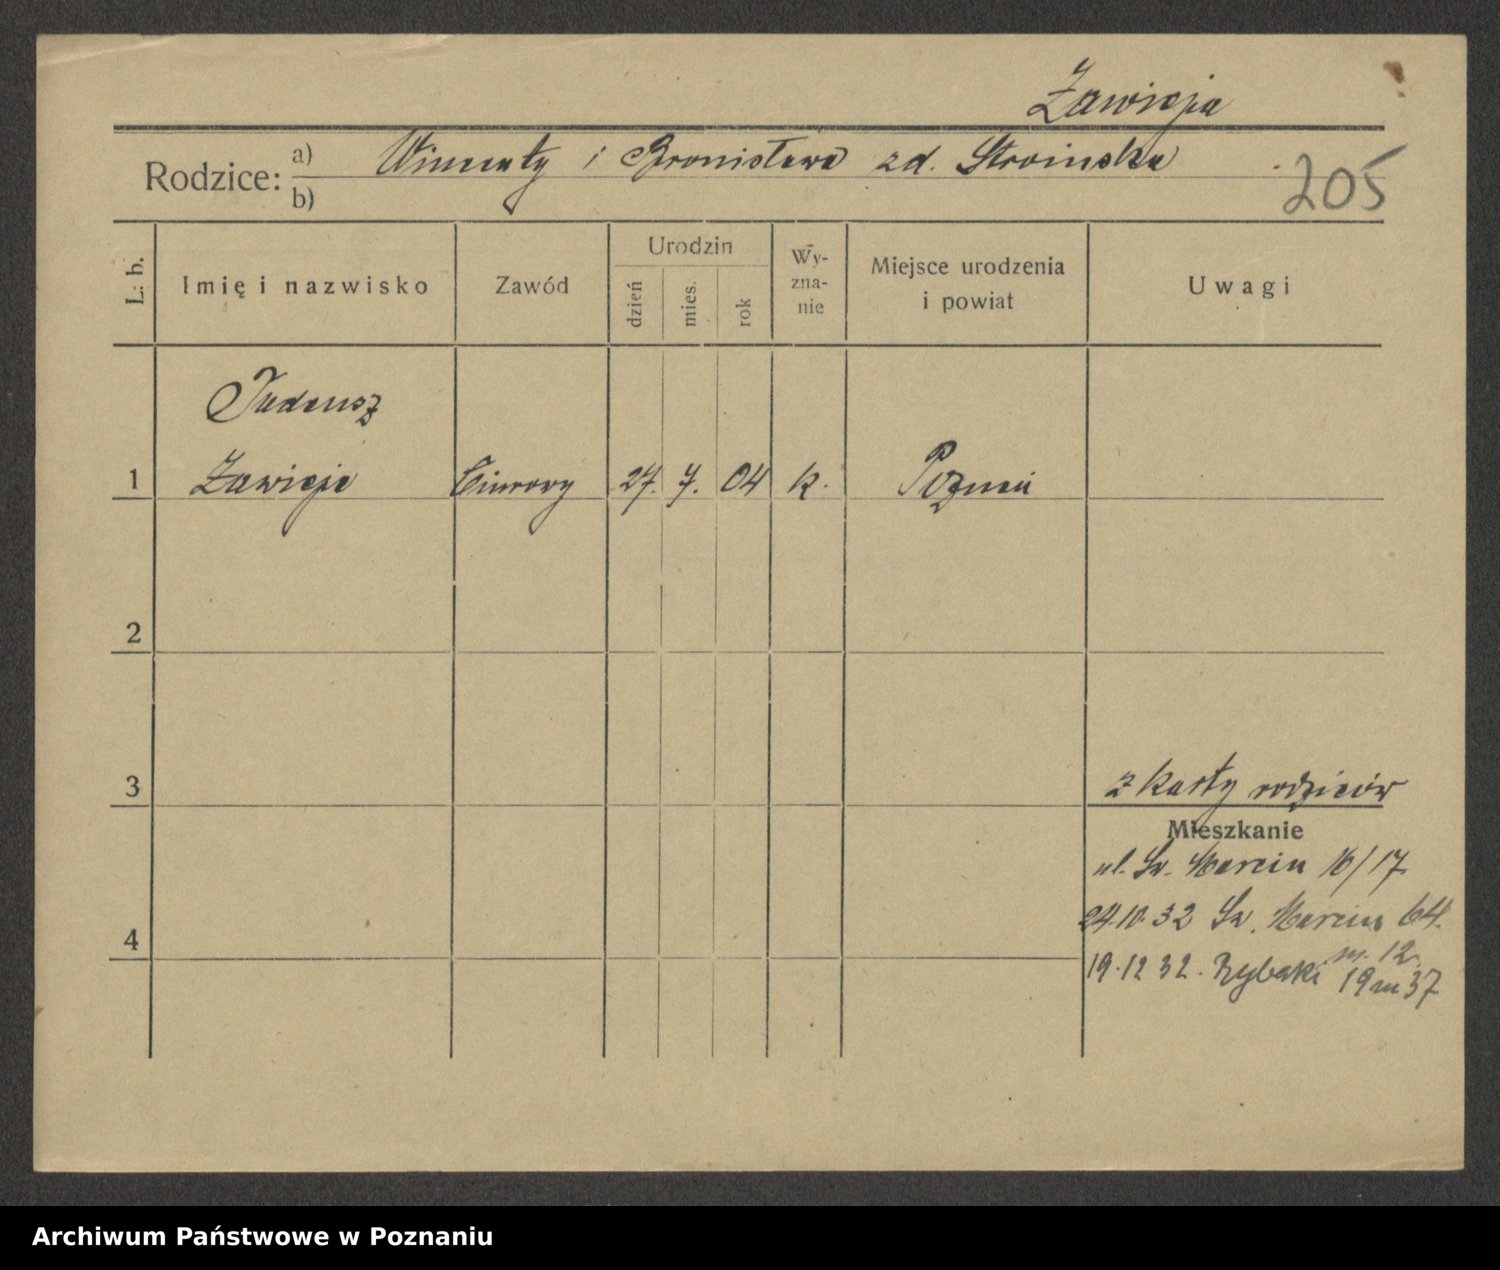 Zawieja
Rodzice: a) Wincenty i Bronisława zd. Stroińska
b)
205
L. b.
Imię i nazwisko
Zawód
Urodzin
dzień
mies.
rok
Wy-
zna-
nie
Miejsce urodzenia
i powiat
Uwagi
Tadeusz
1 Zawieja Biurowy 27. 7. 04 k. Poznań
2
3
z karty rodziców
Mieszkanie
ul. Św. Marcin 16/17
24.10.32 Św. Marcin 64.
m. 12
4
19.12 32. Rybaki 19 m 37
Archiwum Państwowe w Poznaniu